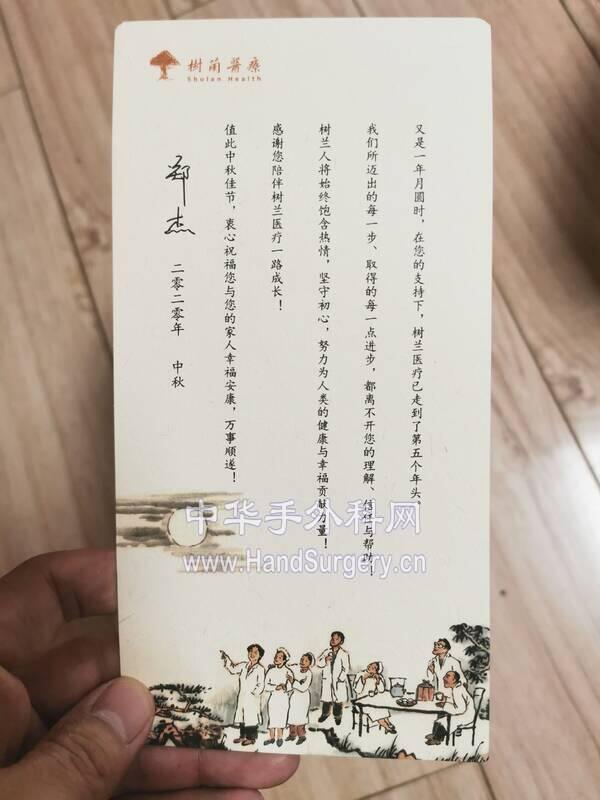 樹蘭醫療
Shulan Health
又是一年月圆时，在您的支持下，树兰医疗已走到了第五个年头，
我们所迈出的每一步、取得的每一点进步，都离不开您的理解、信任与帮助！
树兰人将始终饱含热情，坚守初心，努力为人类的健康与幸福贡献力量！
感谢您陪伴树兰医疗一路成长！
值此中秋佳节，衷心祝福您与您的家人幸福安康，万事顺遂！
郑杰
二零二零年 中秋
中华手外科网
www.HandSurgery.cn